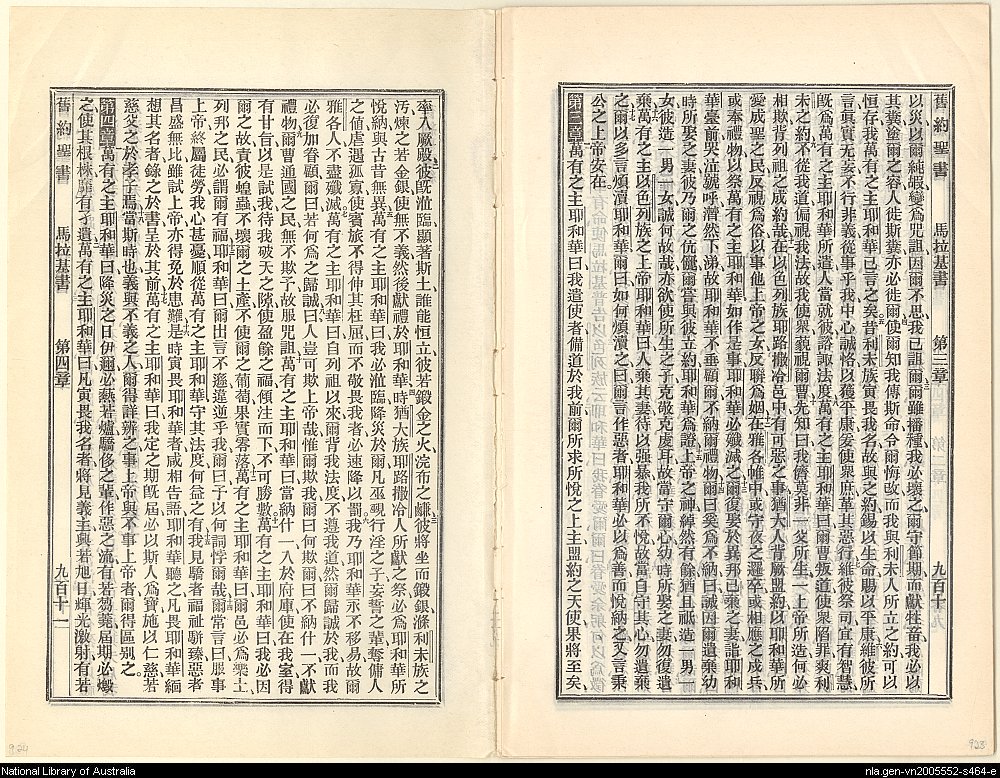 舊約聖書 馬拉基書 第三章 九百十九
以災以爾純嘏變爲咒詛因爾不思我已詛爾爾雖播種我必壞之爾守節期而獻牲畜我必以
其糞塗爾之容人徙斯糞亦必徙爾使爾知我傳斯命令爾悔改而我與利未人所立之約可以
恒存我萬有之主耶和華已言之矣昔利未族寅畏我名故與之約錫以生命賜以平康維彼所
言眞實无妄不行非義從事乎我中心誠恪以獲平康爰使衆庶革其惡行維彼祭司宜有智慧
旣爲萬有之主耶和華所遣人當就彼諮諏法度萬有之主耶和華曰爾曹叛道使衆陷罪爽利
未之約不從我道偏視我法故我使衆藐視爾曹先知曰我儕莫非一父所生一上帝所造何必
相欺背列祖之成約哉在以色列族耶路撒冷邑中有可惡之事猶大人背厥盟約以耶和華所
愛成聖之民反視爲俗以事他上帝之女反聯爲姻在雅各帷中或守夜之邏卒或相應之戍兵
或奉禮物以祭萬有之主耶和華如作是事耶和華必殲滅之爾復娶於異邦已棄之妻詣耶和
華臺前哭泣號呼潸然下涕故耶和華不垂顧爾不納爾禮物爾曰奚爲不納曰誠因爾遺棄幼
時所娶之妻彼乃爾之伉儷爾嘗與彼立約耶和華爲證上帝之神綽然有餘猶且祗造一男一
女彼造一男一女誠何故哉亦欲使所生之子克敬克虔耳故當守爾心幼時所娶之妻勿復遺
棄萬有之主以色列族之上帝耶和華曰人棄其妻待以強暴我所不悅故當自守其心勿遺棄
之爾以多言煩瀆耶和華爾曰如何煩瀆之曰爾言作惡者耶和華必以爲善而悅納之又言秉
公之上帝安在
第三章萬有之主耶和華曰我遣使者備道於我前爾所求所悅之上主盟約之天使果將至矣
率入厥殿彼旣涖臨顯著斯土誰能恒立彼若鍛金之火浣布之鹻彼將坐而鍛銀滌利未族之
污煉之若金銀使無不義然後獻禮於耶和華時猶大族耶路撒冷人所獻之祭必爲耶和華所
悅納與古昔無異萬有之主耶和華曰我必涖臨降災於爾凡巫覡行淫之子妄誓之輩奪傭人
之値虐遇孤寡使賓旅不得伸其枉屈而不敬畏我者必速降以罰我乃耶和華永不移易故爾
雅各人不盡殲滅萬有之主耶和華曰自列祖以來爾背我法度不遵我道然爾歸誠於我而我
必復加眷顧爾曰若何爲之歸誠曰人豈可欺上帝哉惟爾欺我爾曰何欺爾曰不納什一不獻
禮物爾曹通國之民無不欺予故服咒詛萬有之主耶和華曰當納什一入於府庫使在我室得
有甘旨以是試我待我破天之隙使盈餘之福傾注而下不可勝數萬有之主耶和華曰我必因
爾之故責彼蝗蟲不壞爾之土產不使爾之葡萄果實零落萬有之主耶和華曰爾邑必爲樂土
列邦之民必謂爾有福耶和華曰爾出言不遜違逆乎我爾曰予以何詞悖爾哉爾常言曰服事
上帝終屬徒勞我心甚憂順從萬有之主耶和華守其法度何益之有我見驕者福祉駢臻惡者
昌盛無比雖試上帝亦得免於患難是時寅畏耶和華者咸相告語耶和華聽之凡畏耶和華緬
想其名者錄之於書呈於其前萬有之主耶和華曰我定之期旣屆必以斯人爲寶施以仁慈若
慈父之於孝子焉當斯時也義與不義之人爾得詳辨之事上帝與不事上帝者爾得區別之
第四章萬有之主耶和華曰降災之日伊邇必熱若爐驕侈之輩作惡之流有若芻蕘屆期必燬
之使其根株靡有孑遺萬有之主耶和華曰凡寅畏我名者將見義主興若旭日輝光激射有若
舊約聖書 馬拉基書 第四章 九百十一
924
928
National Library of Australia
nla.gen-vn2005552-s464-e